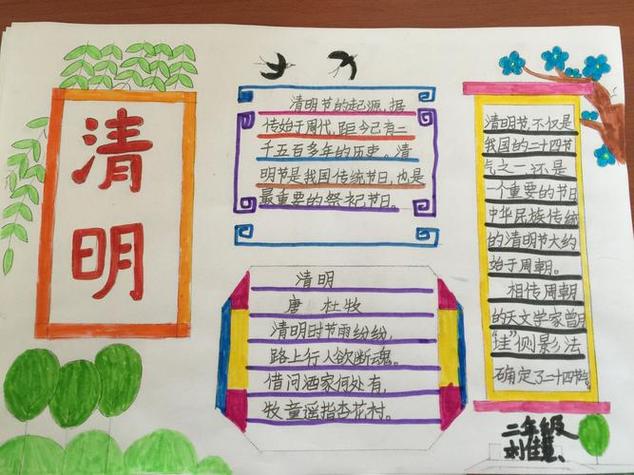 清明
清明节的起源,据
传始于周代,距今已有二
千五百多年的历史。清
明节是我国传统节日,也是
最重要的祭祀节日。
清明
唐 杜牧
清明时节雨纷纷,
路上行人欲断魂。
借问酒家何处有,
牧童遥指杏花村。
清明节,不仅是
我国的二十四节
气之一,还是
一个重要的节日
中华民族传统
的清明节大约
始于周朝。
相传周朝
的天文学家曾用
"圭"侧影法
确定了二十四节气
二年级
刘佳慧